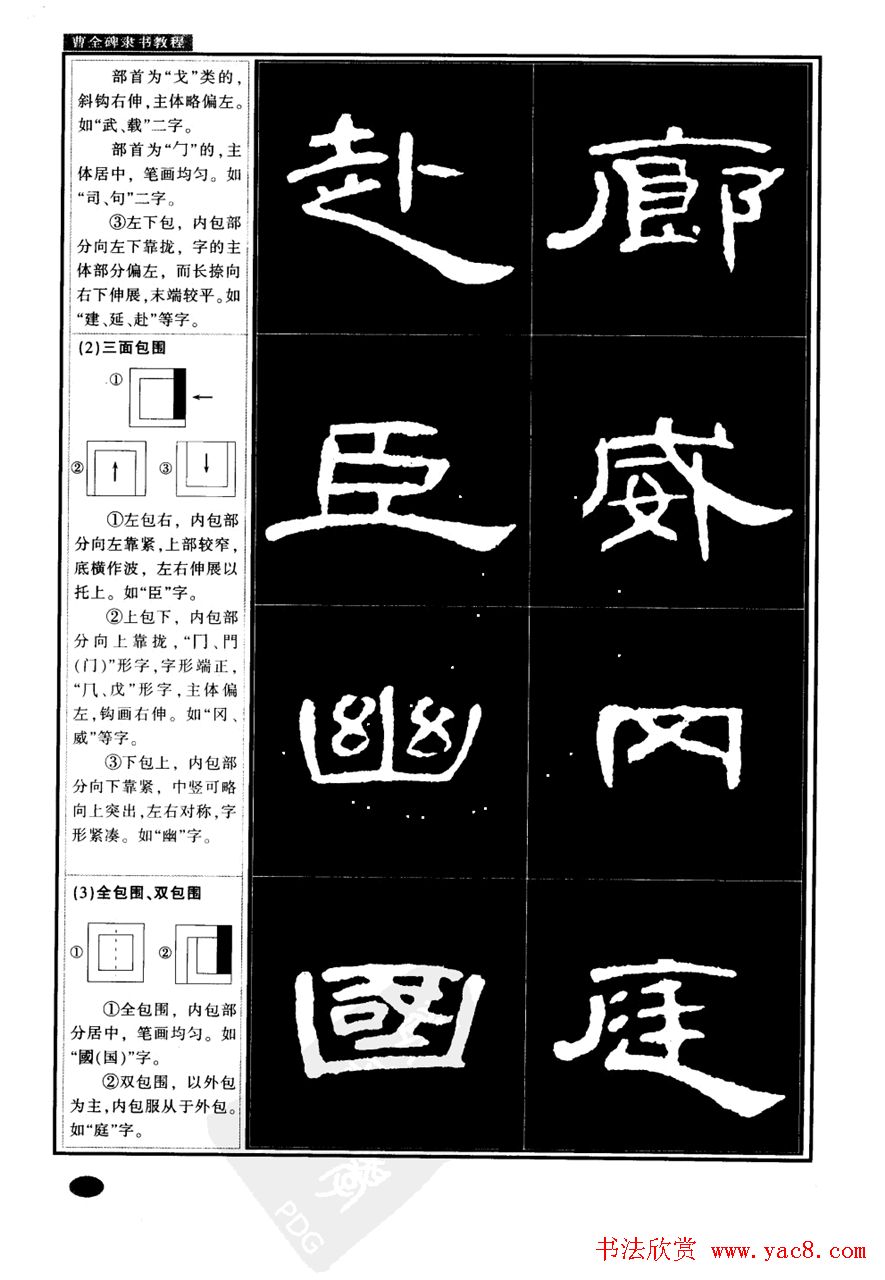 曹全碑隶书教程
部首为“戈”类的，
斜钩右伸，主体略偏左。
如“武、载”二字。
部首为“勹”的，主
体居中，笔画均匀。如
“司、句”二字。
③左下包，内包部
分向左下靠拢，字的主
体部分偏左，而长捺向
右下伸展，末端较平。如
“建、延、赴”等字。
(2)三面包围
①
② ③
①左包右，内包部
分向左靠紧，上部较窄，
底横作波，左右伸展以
托上。如“臣”字。
②上包下，内包部
分向上靠拢，“冂、門
(门)”形字，字形端正，
“⺇、戊”形字，主体偏
左，钩画右伸。如“冈、
威”等字。
③下包上，内包部
分向下靠紧，中竖可略
向上突出，左右对称，字
形紧凑。如“幽”字。
(3)全包围、双包围
① ②
①全包围，内包部
分居中，笔画均匀。如
“國(国)”字。
②双包围，以外包
为主，内包服从于外包。
如“庭”字。
赴 廊
臣 威
幽
國 庭
PDG
书法欣赏 www.yac8.com